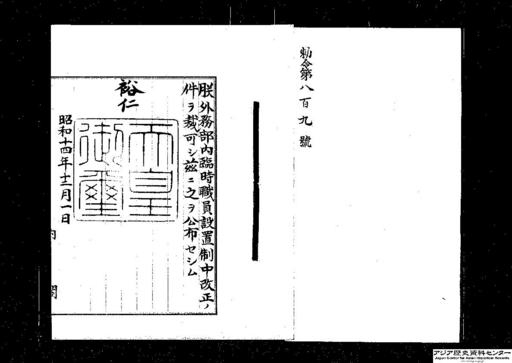 勅令第八百九號
朕外務部內臨時職員設置制中改正ノ
件ヲ裁可シ茲ニ之ヲ公布セシム
裕仁
天皇御璽
昭和十四年十二月一日
內閣
アジア歴史資料センター
Japan Center for Asian Historical Records